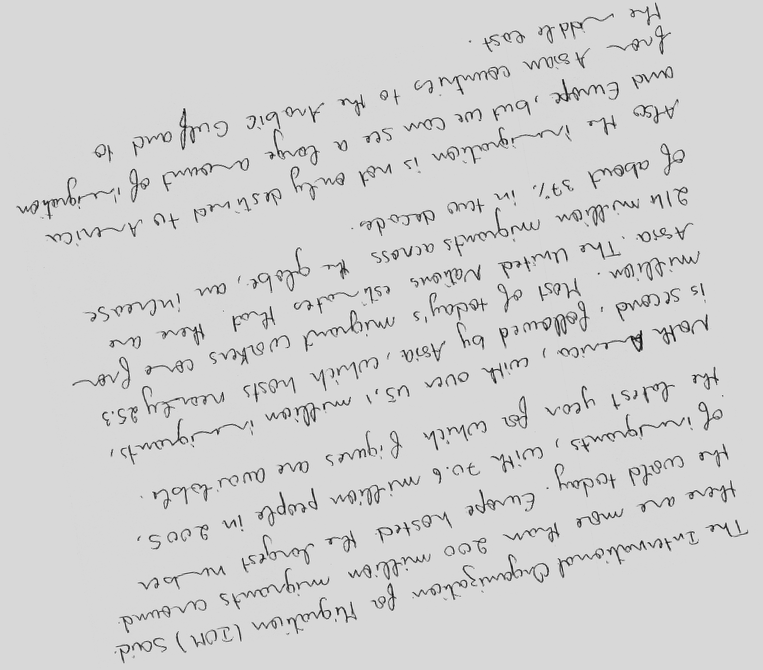 The International Organization for Migration (IOM) said
there are more than 200 million migrants around
the world today. Europe hosted the largest number
of immigrants, with 70.6 million people in 2005,
the latest year for which figures are available.
North America, with over 45,1 million immigrants,
is second, followed by Asia, which hosts nearly 25.3
million. Most of today's migrant workers come from
Asia. The United Nations estimates that there are
214 million migrants across the globe, an increase
of about 37% in two decades.
Also the immigration is not only destined to America
and Europe, but we can see a large amount of imigration
from Asian countries to the Arabic Gulf and to
the middle east.